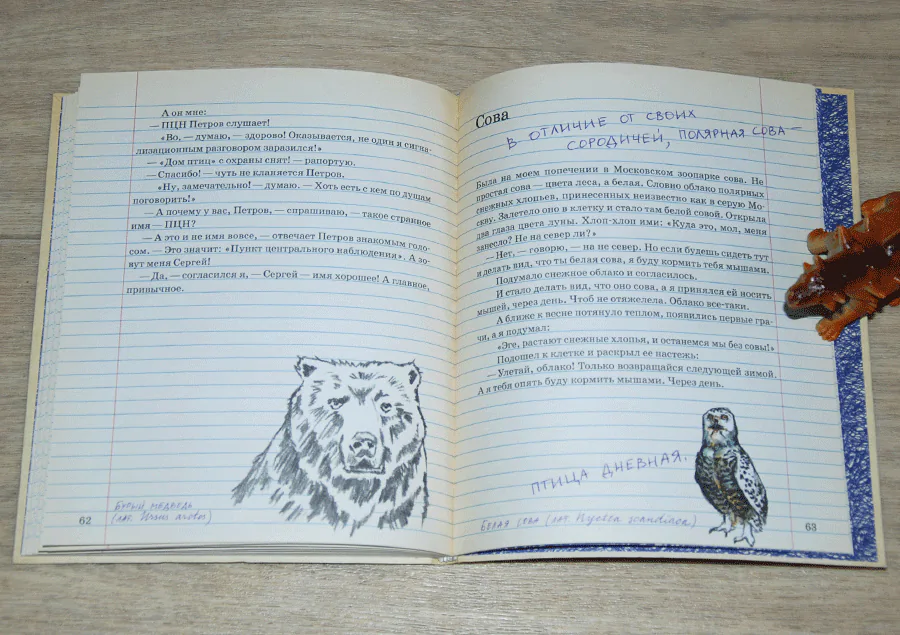 А он мне:
— ПЦН Петров слушает!
«Во, — думаю, — здорово! Оказывается, не один я сигна-
лизационным разговором заразился!»
— «Дом птиц» с охраны снят! — рапортую.
— Спасибо! — чуть не кланяется Петров.
«Ну, замечательно! — думаю. — Хоть есть с кем по душам
поговорить!»
— А почему у вас, Петров, — спрашиваю, — такое странное
имя — ПЦН?
— А это и не имя вовсе, — отвечает Петров знакомым голо-
сом. — Это значит: «Пункт центрального наблюдения». А зо-
вут меня Сергей!
— Да, — согласился я, — Сергей — имя хорошее! А главное,
привычное.
Бурый медведь
(лат. Ursus arctos)
62
Сова
В ОТЛИЧИЕ ОТ СВОИХ
СОРОДИЧЕЙ, ПОЛЯРНАЯ СОВА —
Была на моем попечении в Московском зоопарке сова. Не
простая сова — цвета леса, а белая. Словно облако полярных
снежных хлопьев, принесенных неизвестно как в серую Мо-
скву. Залетело оно в клетку и стало там белой совой. Открыла
два глаза цвета луны. Хлоп-хлоп ими: «Куда это, мол, меня
занесло? Не на север ли?»
— Нет, — говорю, — на не север. Но если будешь сидеть тут
и делать вид, что ты белая сова, я буду кормить тебя мышами.
Подумало снежное облако и согласилось.
И стало делать вид, что оно сова, а я принялся ей носить
мышей, через день. Чтоб не отяжелела. Облако все-таки.
А ближе к весне потянуло теплом, появились первые гра-
чи, а я подумал:
«Эге, растают снежные хлопья, и останемся мы без совы!»
Подошел к клетке и раскрыл ее настежь:
— Улетай, облако! Только возвращайся следующей зимой.
А я тебя опять буду кормить мышами. Через день.
ПТИЦА ДНЕВНАЯ.
Белая сова (лат. Nyctea scandiaca)
63